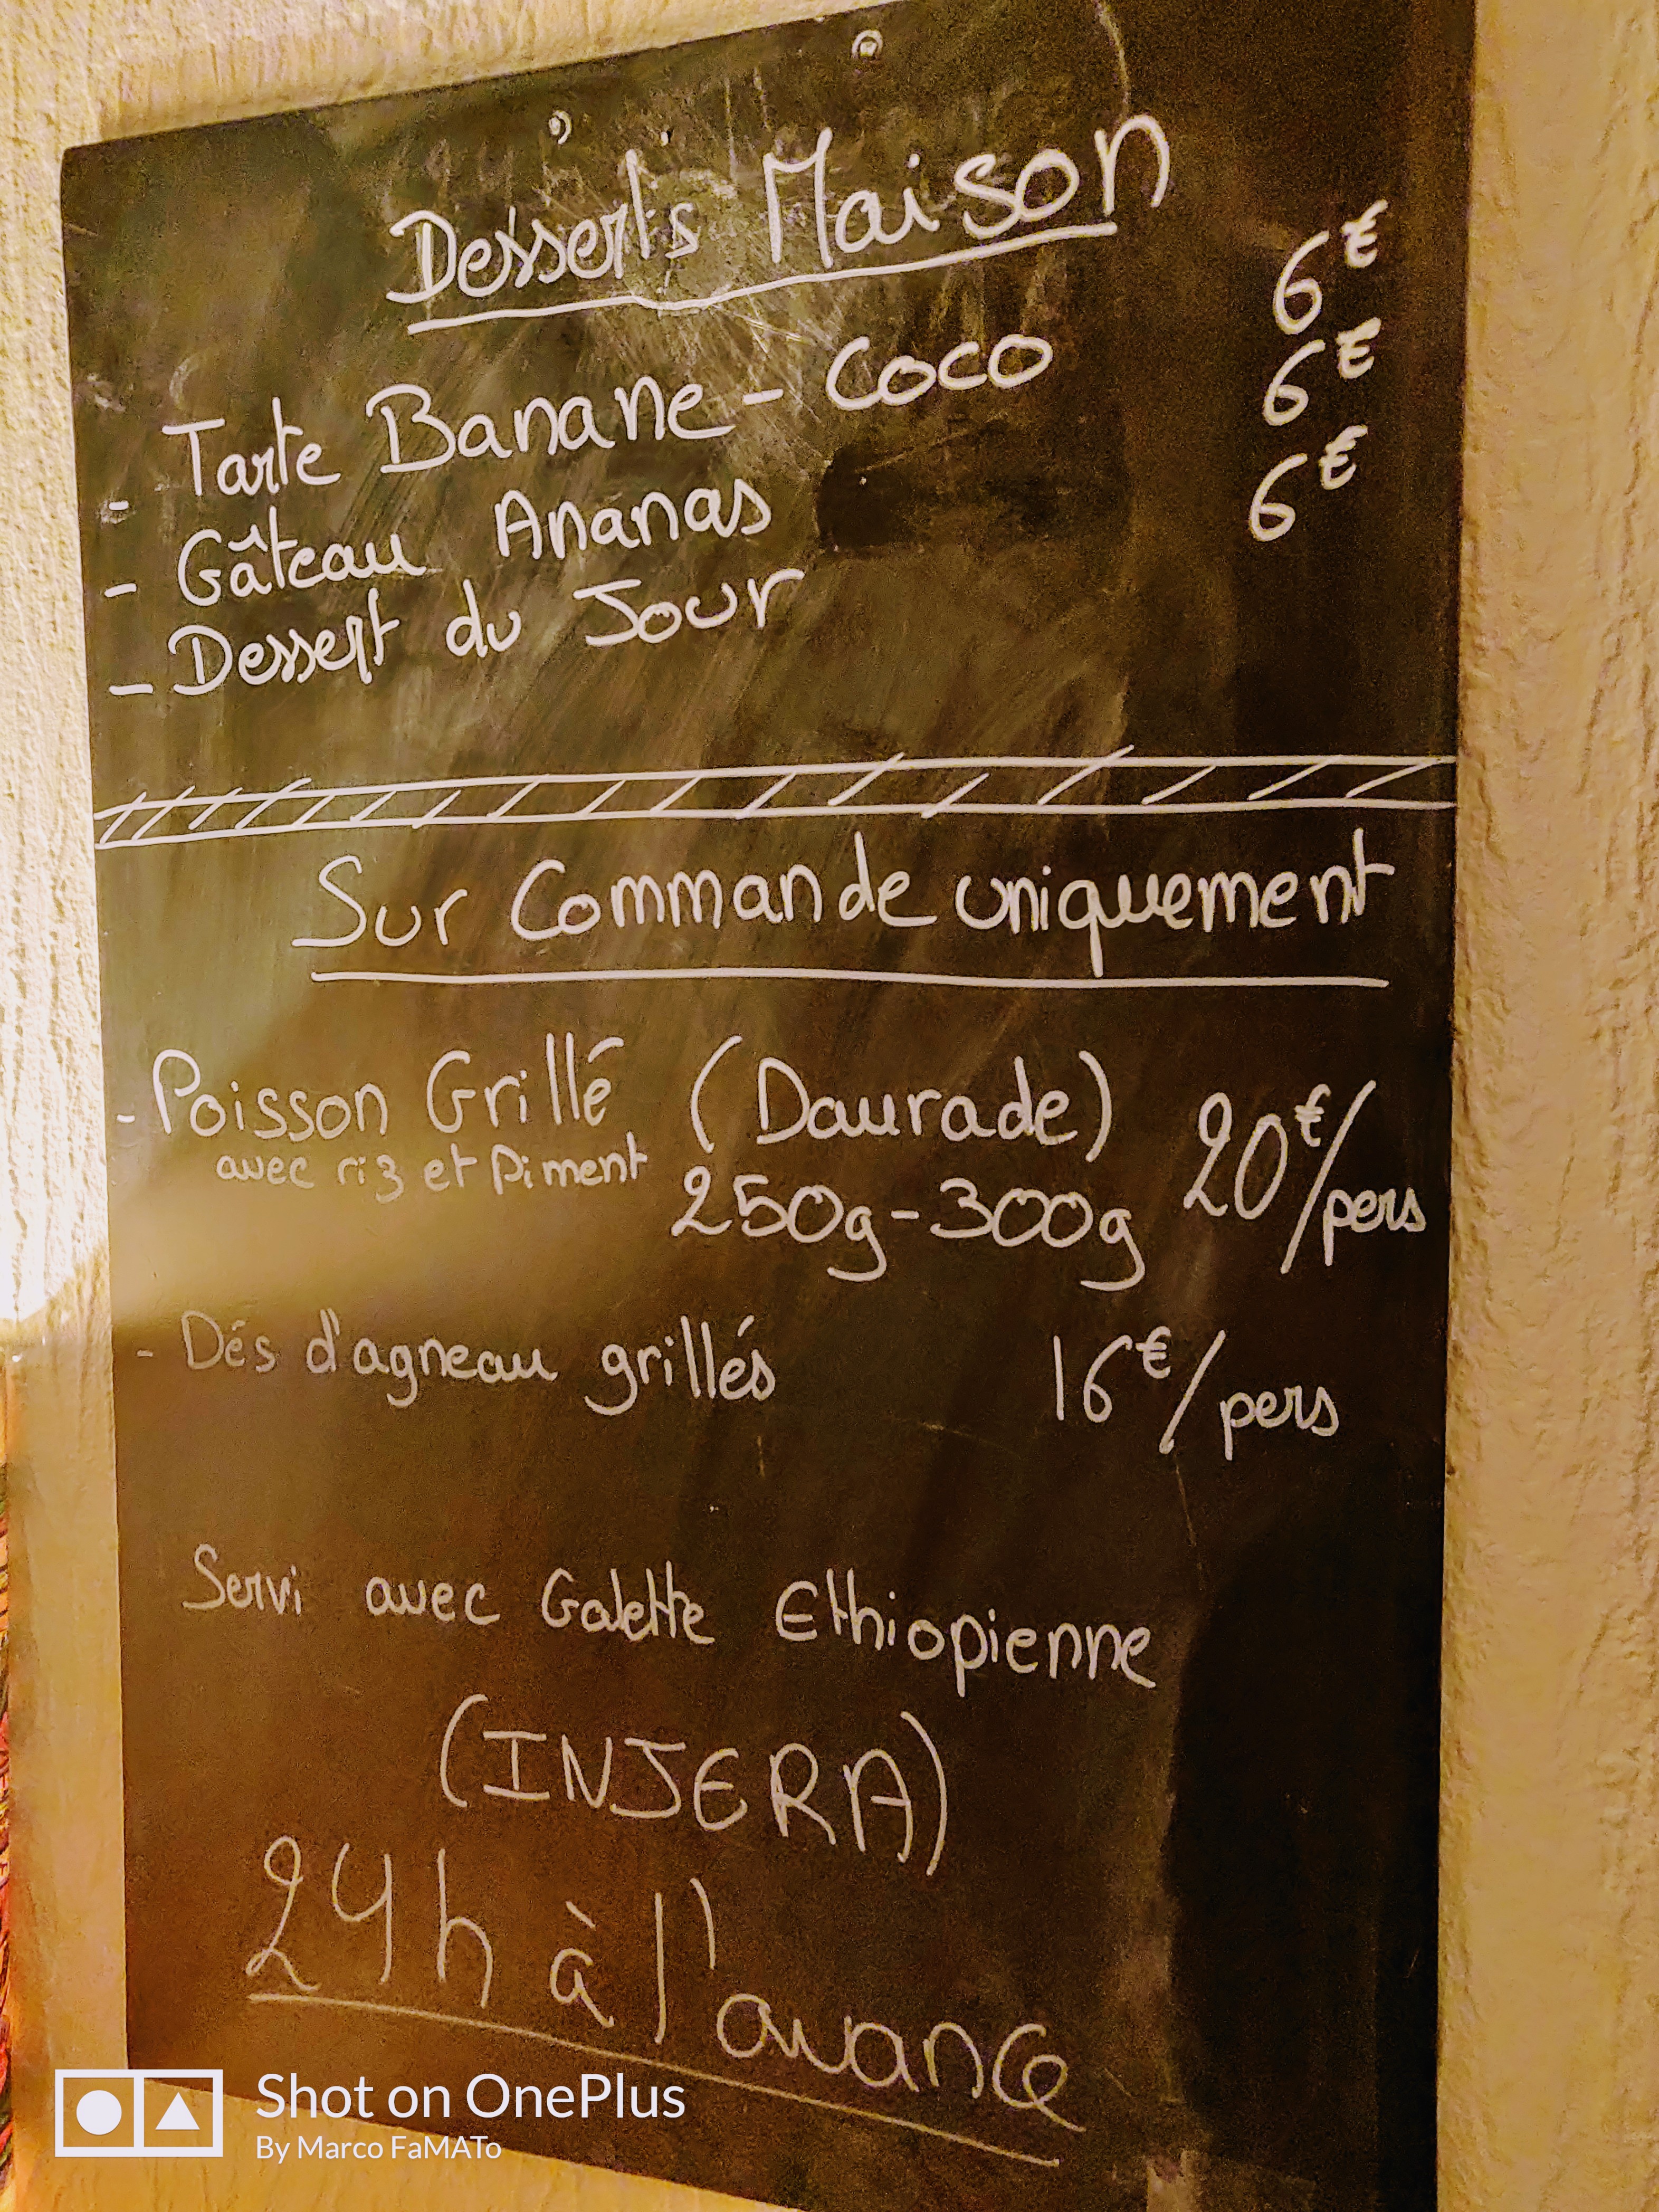 Desserts Maison
- Tarte Banane - Coco 6€
- Gâteau Ananas 6€
- Dessert du Jour 6€
Sur Commande uniquement
- Poisson Grillé (Daurade) 20€/pers
avec riz et Piment 250g-300g
- Dés d'agneau grillés 16€/pers
Servi avec Galette Ethiopienne
(INJERA)
24h à l'avance
Shot on OnePlus
By Marco FaMATo